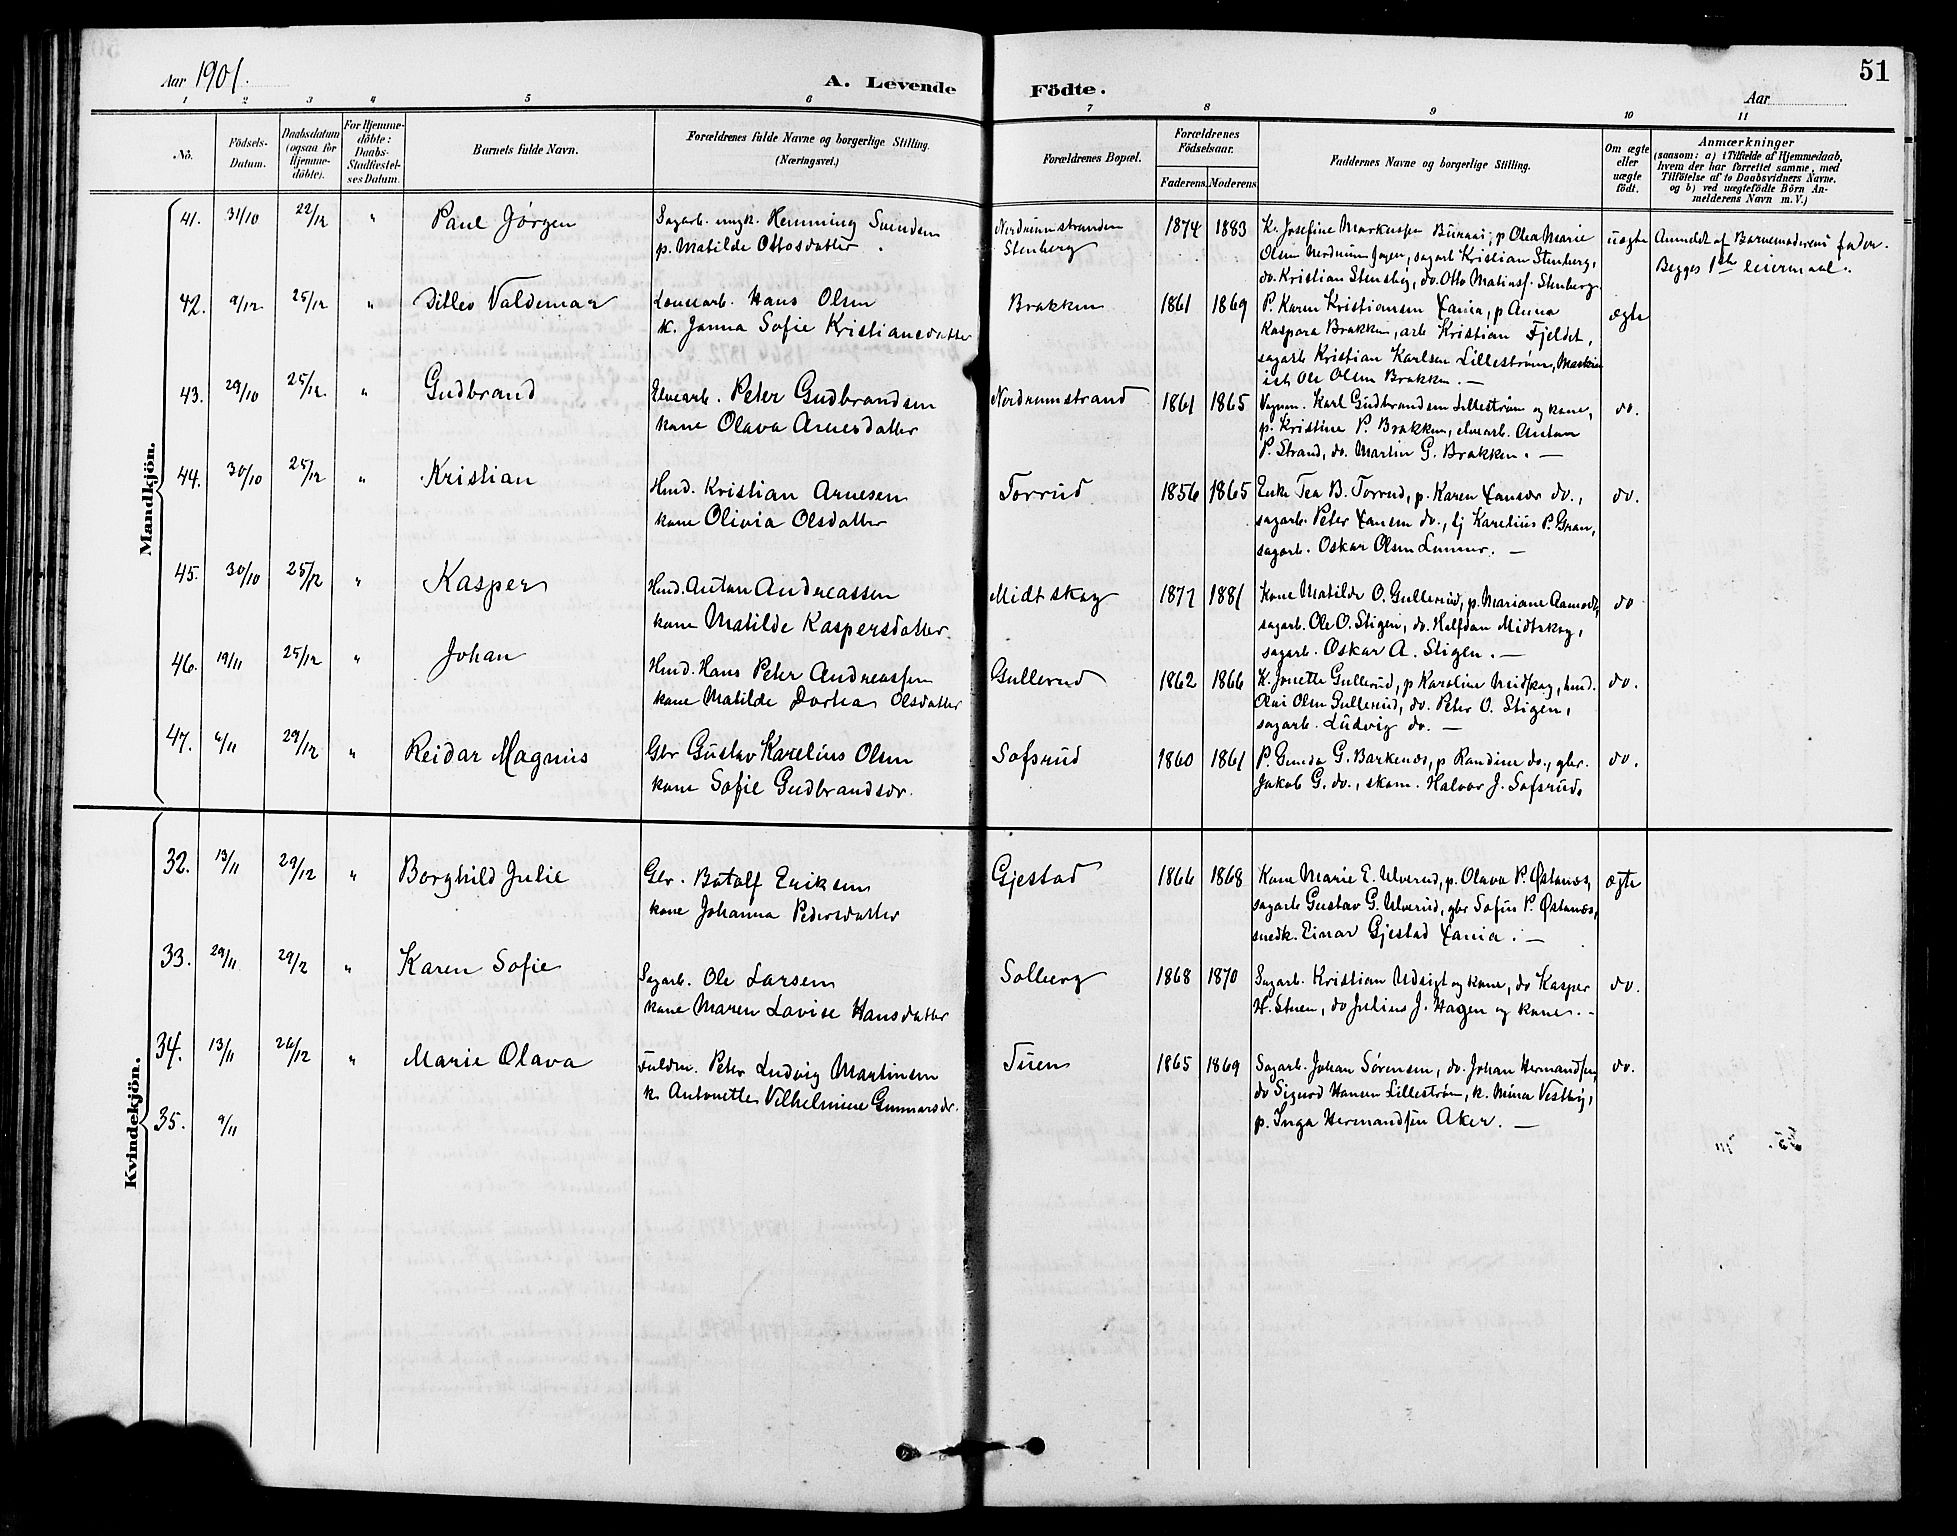 51
Aar 1901.
A. Levende Födte.
Aar
1 2 3 4 5 6 7 8 9 10 11
No.
Födsels-Datum.
Daabsdatum (ogsaa for Hjemme-döbte).
For Hjemme-döbte: Daabs-Stadfæstel-ses Datum.
Barnets fulde Navn.
Forældrenes fulde Navne og borgerlige Stilling.
(Næringsvei.)
Forældrenes Bopæl.
Forældrenes Födselsaar.
Faderens. Moderens.
Faddernes Navne og borgerlige Stilling.
Om ægte eller uægte födt.
Anmærkninger
(saasom: a) i Tilfælde af Hjemmedaab,
hvem der har forrettet samme, med
Tilföielse af to Daabsvidners Navne,
og b) ved uægtefödte Börn An-
melderens Navn m. V.)
Mandkjön.
41. 31/10 22/12 " Paul Jørgen
Sagarb. ungk. Hemming Svendsen
p. Matilde Ottosdatter
Nordrumstranden
Stenberg
1874 1883
K. Josefine Markusen p. Olea Marie
Olsen Nordrum sagarb Kristian Stenberg,
do. Kristian Stensby, do. Otto Matiasf. Stenberg
uægte
Anmeldt af Barnemoderens fader.
Begges 1ste leiermaal.
42. 9/12 25/12 " Ditlev Valdemar
Hans Olsen
k. Janna Sofie Kristiansdatter
Brakken
1861 1869
P. Karen Kristiansen Xania, p Anna
Kaspara Brakken, arb Kristian Fjeldet,
sagarb Kristian Karlsen Lillestrøm, Maskin
ist Ole Olsen Brakken. —
ægte
43. 29/10 25/12 " Gudbrand
Elvearb. Peter Gudbrandsen
kone Olava Arnesdatter
Nordrumstrand
1861 1865
Vognm. Karl Gudbrandsen Lillestrøm og kone,
p. Kristine P. Brakken, elvearb. Anton
P. Strand, do. Martin G. Brakken. —
do.
44. 30/10 25/12 " Kristian
Hmd. Kristian Arnesen
kone Olivia Olsdatter
Torrud
1856 1865
Enke Tea B. Torrud, p. Karen do.,
sagarb. Peter Hansen do., Karelius P. Gran,
sagarb. Oskar Olsen —
do.
45. 30/10 25/12 " Kasper
Hmd. Anton Andreassen
kone Matilde Kaspersdatter
Midtskog
1877 1881
Kone Matilde O. Gullerud, p. Mariane Aamodt,
sagarb. Ole O. Stigen, do. Halfdan Midtskog,
sagarb. Oskar A. Stigen. —
do
46. 19/11 25/12 " Johan
Hmd. Hans Peter Andreassen
kone Matilde Dortea Olsdatter
Gullerud
1862 1866
K. Jonette Gullerud, p Karoline Midskog, hmd.
Olai Olsen Gullerud, do. Peter O. Stigen,
sagarb. Ludvig do. —
do.
47. 6/11 29/12 " Reidar Magnus
Gbr Gustav Karelius Olsen
kone Sofie Gudbrandsdr.
Sofsrud
1860 1861
P. Gunda G. Barkenæs, p Randine do., gbr.
Jakob G. do., skom. Halvor J. Sofsrud.
do.
Kvindekjön.
32. 13/11 29/12 " Borghild Julie
Gbr. Botolf Eriksen
kone Johanna Pedersdatter
Gjestad
1866 1868
Kone Marie E. Ulverud, p. Olava P. Østanæs,
sagarb Gustav G. Ulverud, gbr Sofus P. Østanæs,
snedk. Einar Gjestad Xania. —
ægte
33. 29/11 29/12 " Karen Sofie
Sagarb. Ole Larsen
kone Maren Lovise Hansdatter
Solberg
1868 1870
Sagarb. Kristian Udsigt og kone, do Kasper
H. Stuen, do Julius J. Hagen og kone. -
do.
34. 13/11 26/12 " Marie Olava
Fuldm. Peter Ludvig Martinsen
k. Antonette Vilhelmine Gunnarsdr.
Tuen
1865 1869
Sagarb. Johan Sørensen, do. Johan Hermandsen,
do Sigurd Hansen Lillestrøm, k. Mina Vestby,
p. Inga Hermandsen Aker. —
do.
35. 9/11